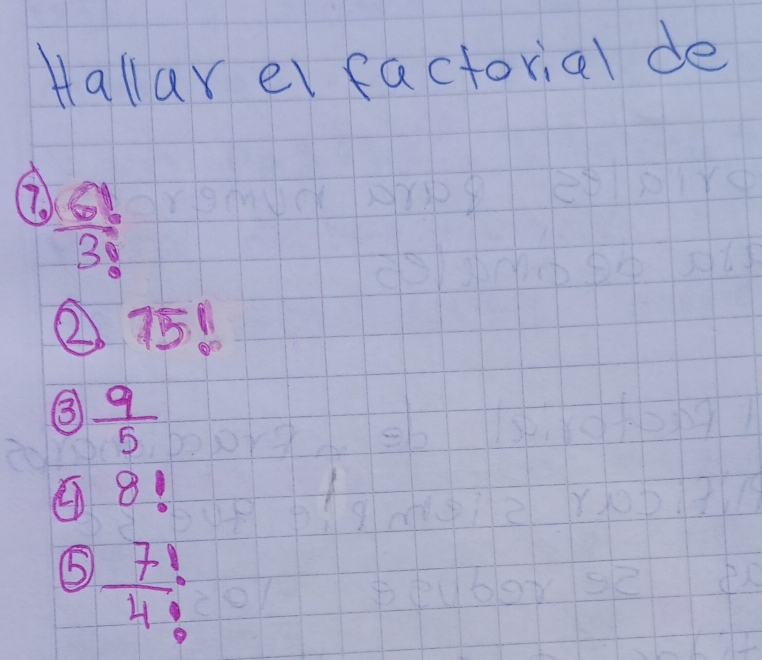 Hallar el factorial de
1. 6!
3!
2. 15!
3 9
5
4 8!
5 7!
4!